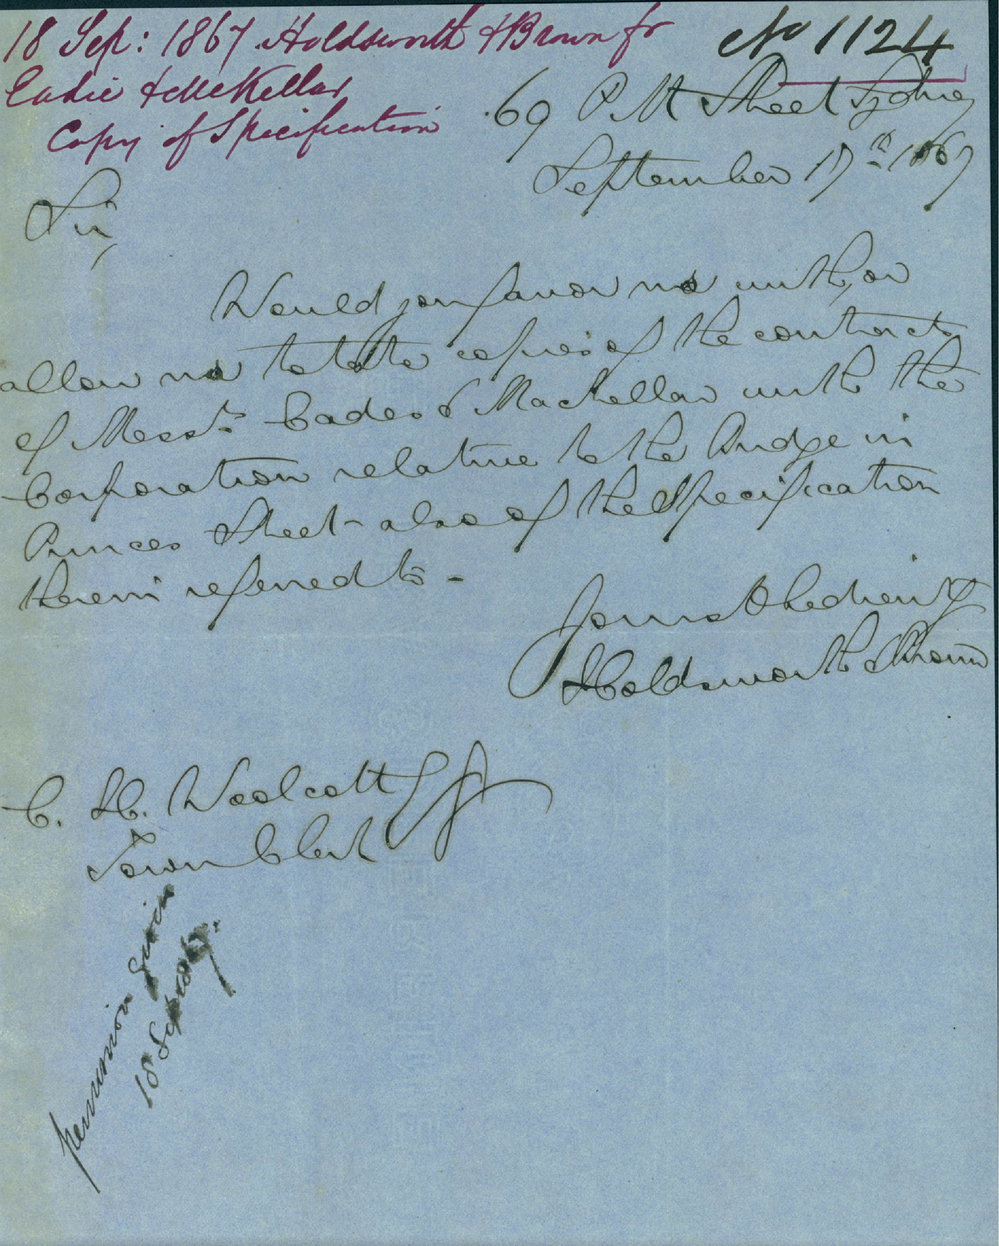 18 Sep: 1867 Holdsworth & Brown fr
Eadie & McKellar
Copy of Specification
No 1124
69 Pitt Street Sydney
September 17th 1867
Sir,
Would you favor us with, or
allow us to take copies of the contracts
of Messrs Eadie & MacKellar with the
Corporation relative to the Bridge in
Princes Street - also of the Specification
therein referred to -
Yours Obediently
Holdsworth & Brown
C. H. Woolcott Esq
Town Clerk
permission given
18 Sept 1867.